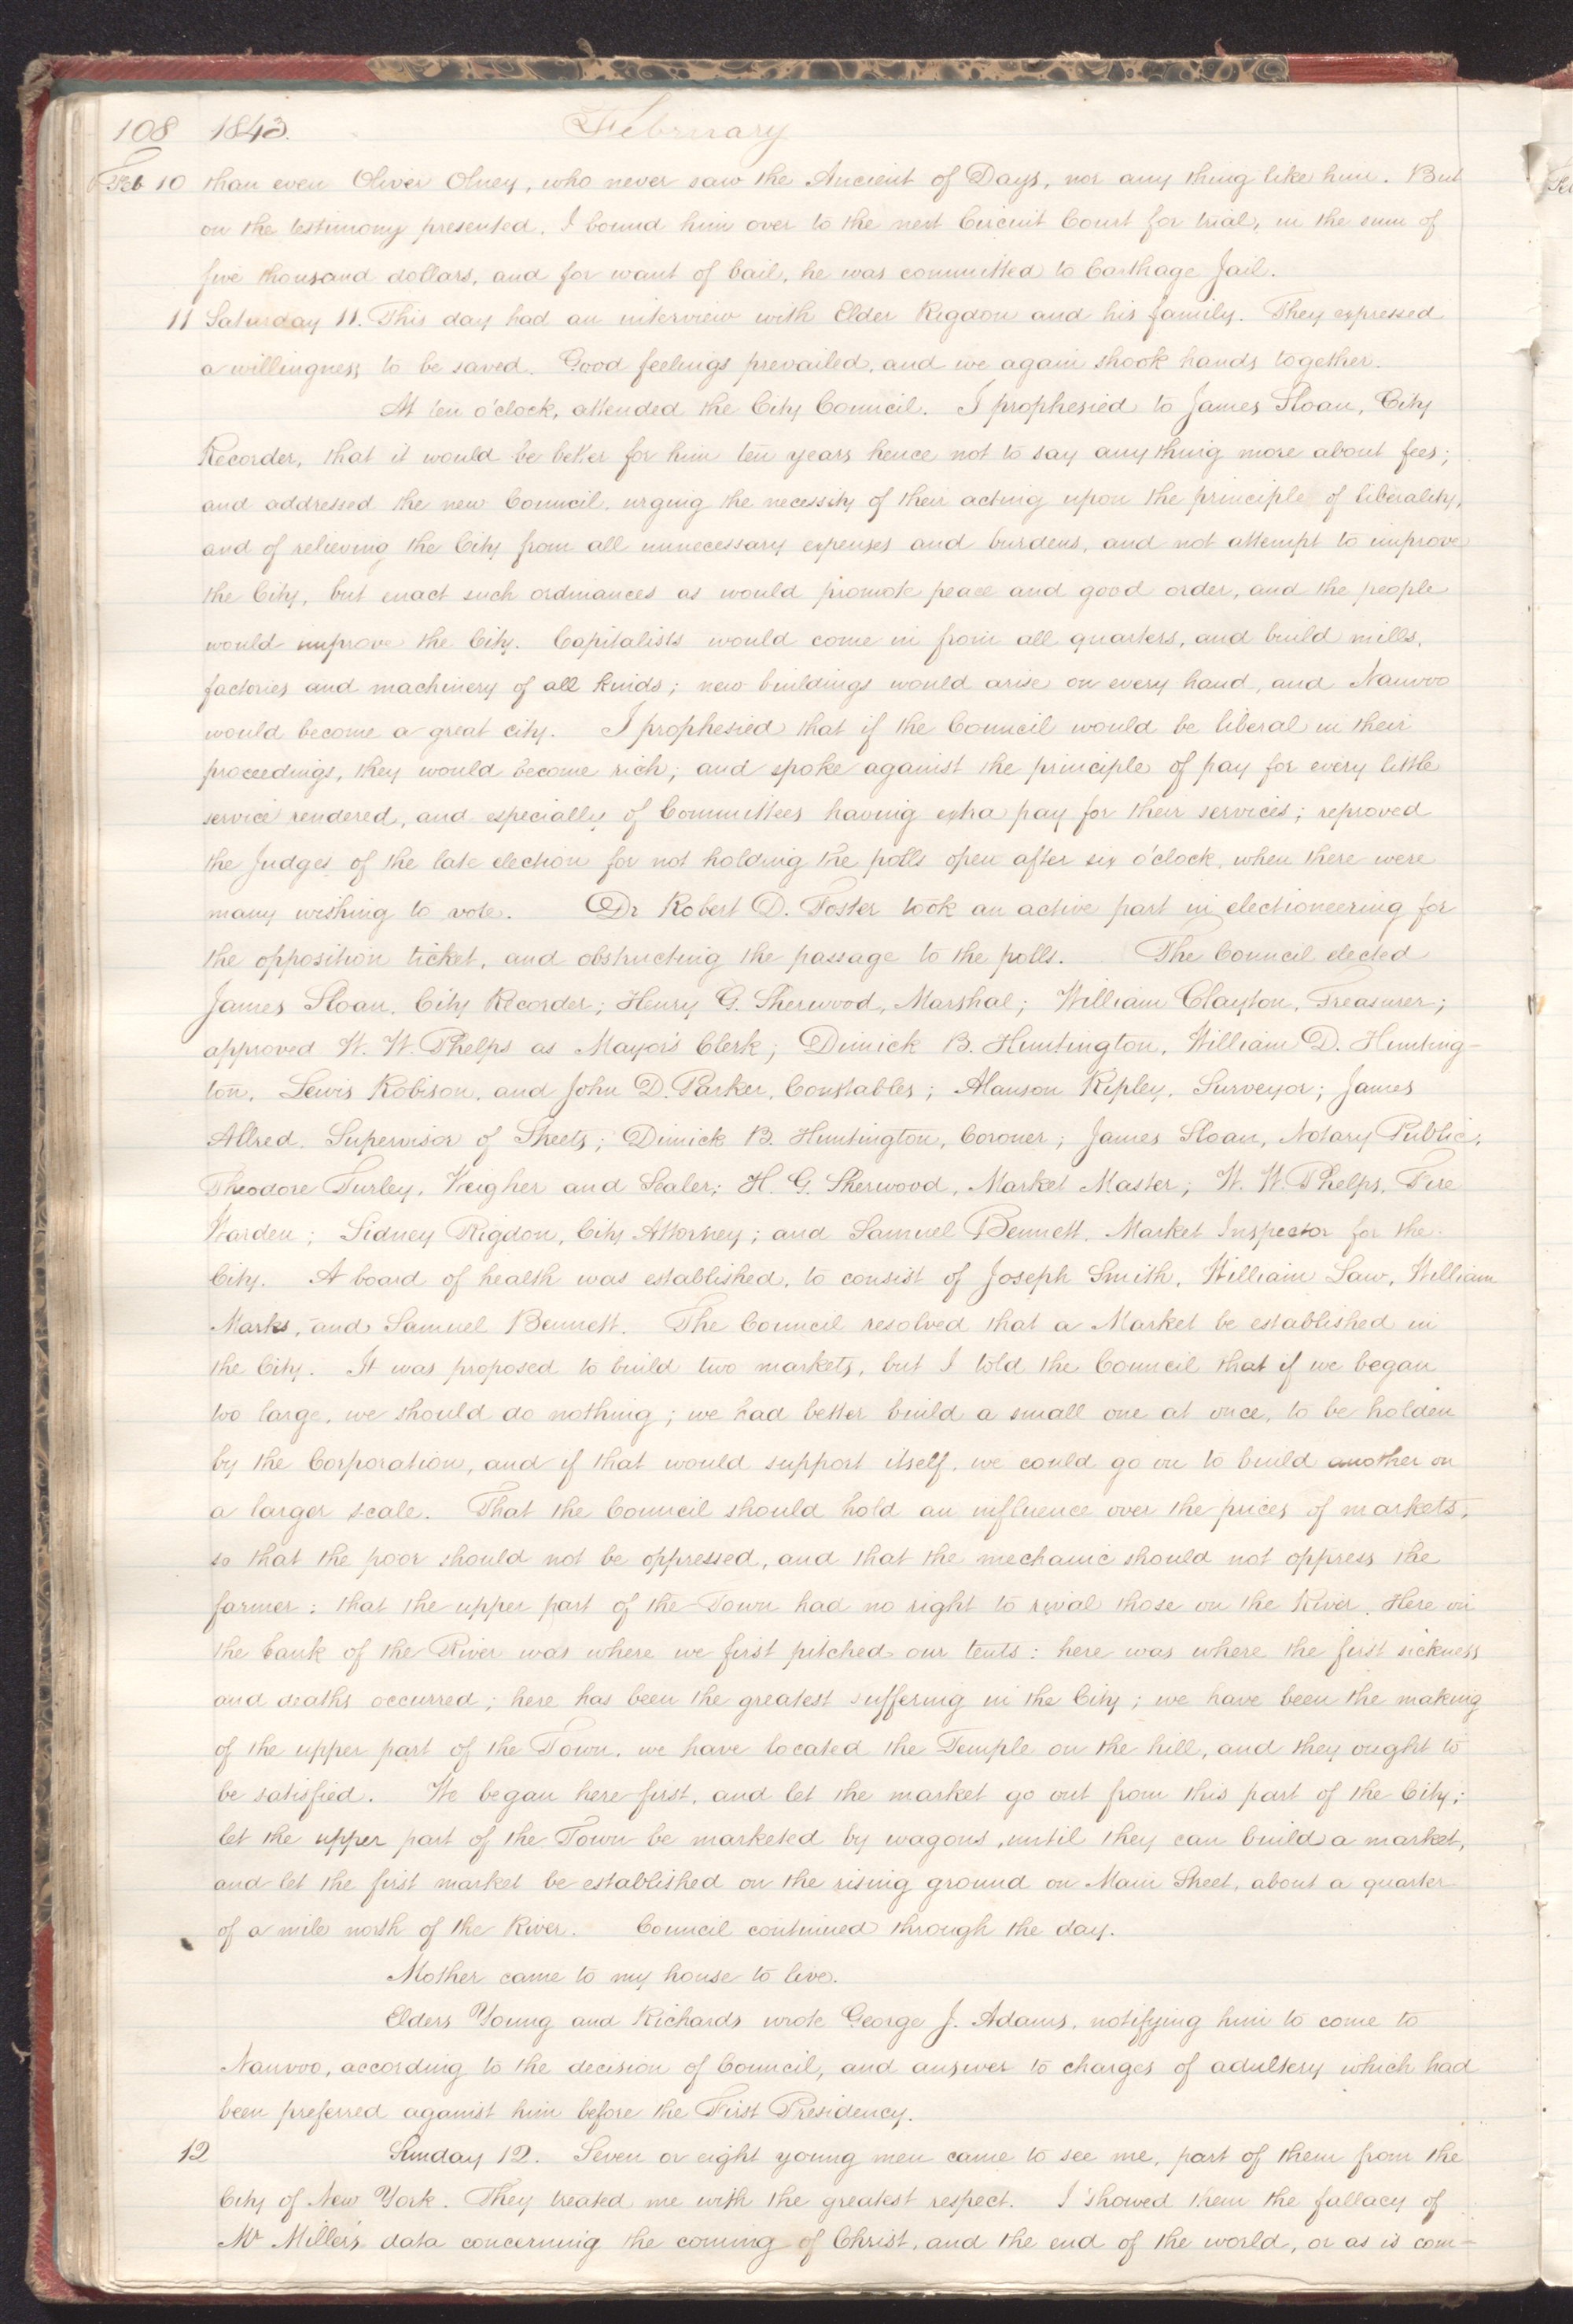 108 1843. February
Feb 10 than even Oliver Olney, who never saw the Ancient of Days, nor any thing like him. But
on the testimony presented, I bound him over to the next Circuit Court for trial, in the sum of
five thousand dollars, and for want of bail, he was committed to Carthage Jail.
11 Saturday 11. This day had an interview with Elder Rigdon and his family. They expressed
a willingness to be saved. Good feelings prevailed, and we again shook hands together.
At ten o'clock, attended the City Council. I prophesied to James Sloan, City
Recorder, that it would be better for him ten years hence not to say any thing more about fees;
and addressed the new Council, urging the necessity of their acting upon the principle of liberality,
and of relieving the City from all unnecessary expenses and burdens, and not attempt to improve
the City, but enact such ordinances as would promote peace and good order, and the people
would improve the City. Capitalists would come in from all quarters, and build mills,
factories and machinery of all kinds; new buildings would arise on every hand, and Nauvoo
would become a great city. I prophesied that if the Council would be liberal in their
proceedings, they would become rich; and spoke against the principle of pay for every little
service rendered, and especially of Committees having extra pay for their services; reproved
the Judges of the late election for not holding the polls open after six o'clock, when there were
many wishing to vote. Dr Robert D. Foster took an active part in electioneering for
the opposition ticket, and obstructing the passage to the polls. The Council elected
James Sloan, City Recorder; Henry G. Sherwood, Marshal; William Clayton, Treasurer;
approved W. W. Phelps as Mayor's Clerk; Dimick B. Huntington, William D. Hunting-
ton, Lewis Robison, and John D. Parker, Constables; Alanson Ripley, Surveyor; James
Allred, Supervisor of Streets; Dimick B. Huntington, Coroner; James Sloan, Notary Public;
Theodore Turley, Weigher and Sealer; H. G. Sherwood, Market Master; W. W. Phelps, Fire
Warden; Sidney Rigdon, City Attorney; and Samuel Bennett, Market Inspector for the
City. A board of health was established, to consist of Joseph Smith, William Law, William
Marks, and Samuel Bennett. The Council resolved that a Market be established in
the City. It was proposed to build two markets, but I told the Council that if we began
too large, we should do nothing; we had better build a small one at once, to be holden
by the Corporation, and if that would support itself, we could go on to build another on
a larger scale. That the Council should hold an influence over the prices of markets,
so that the poor should not be oppressed, and that the mechanic should not oppress the
farmer: that the upper part of the Town had no right to rival those on the River. Here on
the bank of the River was where we first pitched our tents: here was where the first sickness
and deaths occurred; here has been the greatest suffering in the City; we have been the making
of the upper part of the Town, we have located the Temple on the hill, and they ought to
be satisfied. We began here first, and let the market go out from this part of the City;
let the upper part of the Town be marketed by wagons, until they can build a market,
and let the first market be established on the rising ground on Main Street, about a quarter
of a mile north of the River. Council continued through the day.
Mother came to my house to live.
Elders Young and Richards wrote George J. Adams, notifying him to come to
Nauvoo, according to the decision of Council, and answer to charges of adultery which had
been preferred against him before the First Presidency.
12 Sunday 12. Seven or eight young men came to see me, part of them from the
City of New York. They treated me with the greatest respect. I showed them the fallacy of
Mr Miller's data concerning the coming of Christ, and the end of the world, or as is com-